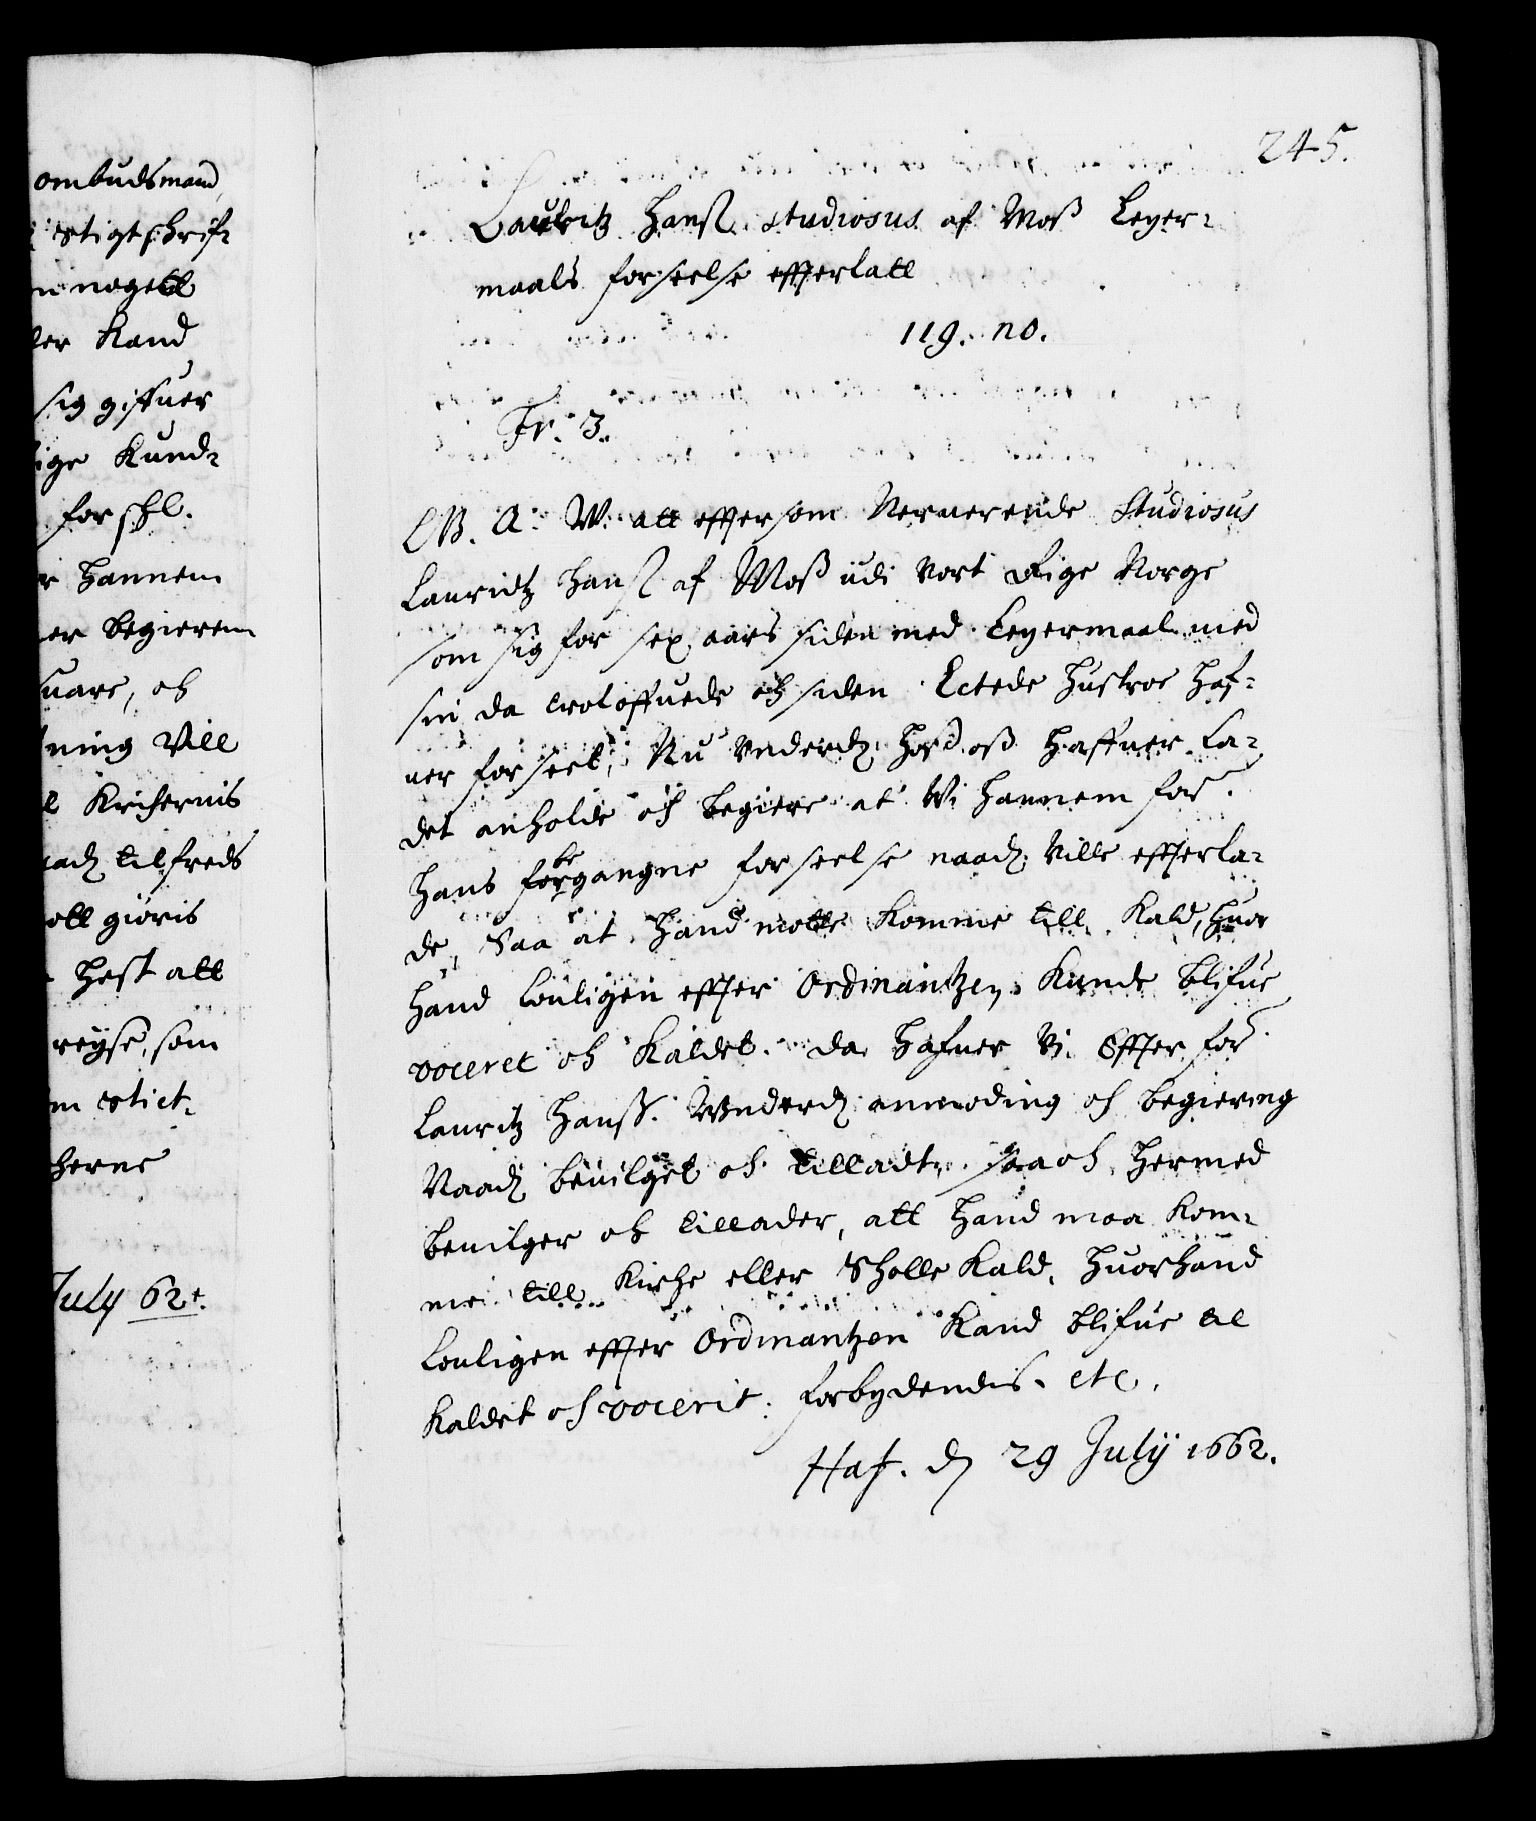 ombudsmand,
stigtschrif-
nogett
der Kand
sig gifuer
lige Kund-
for schl.
r hannem
er begierem
suare, och
ning Vill
Krichernis
naadh tilfreds
ott giöris
hest att
reyse, som
m stict-
herne
July 62t.
245.
Lauritz Hanß. studiosus af Moß Leyer-
maals forseelse effterlatt
119. no.
Fr. 3.
G. A. W. att effter som Nerverende Studiosus
Lauridtz Hanß. af Moß udi vort Rige Norge
som sig for sex aars siden med Leyermaal med
sin da troloffuede och siden Ectede hustroe haf-
uer forseet, Nu Vnderdh hoes oß haffuer la-
det anholde och begiere at Vi hannem for
hans forbegangne forseelse naadh: Ville effterla-
de, Saa at hand motte komme till Kald, huor
hand louligen effter Ordinantzen kunde blifue
voceret och Kaldet. da hafuer Vi Effter for:
Lauritz Hanß. Vnderdh anmoding och begiering
Naadh beuilget och tilladt, saa och hermed
beuilger och tillader, att hand maa kom-
me till Kirche eller Scholle Kald, huorhand
louligen effter Ordinantzen Kand blifue til
Kaldet och vocerit: forbydendis. etc.
Haf. dh 29 July 1662.